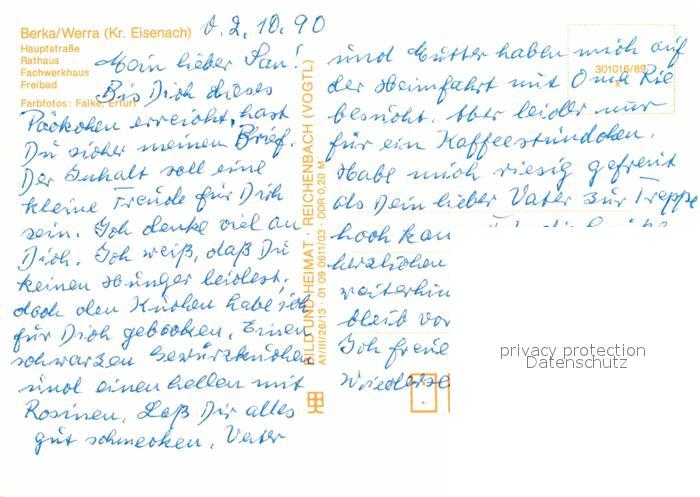 Berka/Werra (Kr. Eisenach)
Hauptstraße
Rathaus
Fachwerkhaus
Freibad
Farbfotos: Falke, Erfurt
d. 2. 10. 90
Mein lieber Jan!
Bis Dich dieses
Päckchen erreicht, hast
Du sicher meinen Brief.
Der Inhalt soll eine
kleine Freude für Dich
sein. Ich denke viel an
Dich. Ich weiß, daß Du
keinen Hunger leidest,
doch den Kuchen habe ich
für Dich gebacken. Einen
schwarzen Gewürzkuchen
und einen hellen mit
Rosinen. Laß Dir alles
gut schmecken. Vater
BILD UND HEIMAT · REICHENBACH (VOGTL)
A1/III/26/13 01 09 0611/03 · DDR 0,20 M
301016/89
und Mutter haben mich auf
der Heimfahrt mit Oma Rie
besucht. Aber leider nur
für ein Kaffeestündchen.
Habe mich riesig gefreut
als Dein lieber Vater zur Treppe
hoch kam
herzlichen
weiterhin
bleib vor
Ich freue
Wiederse
privacy protection
Datenschutz